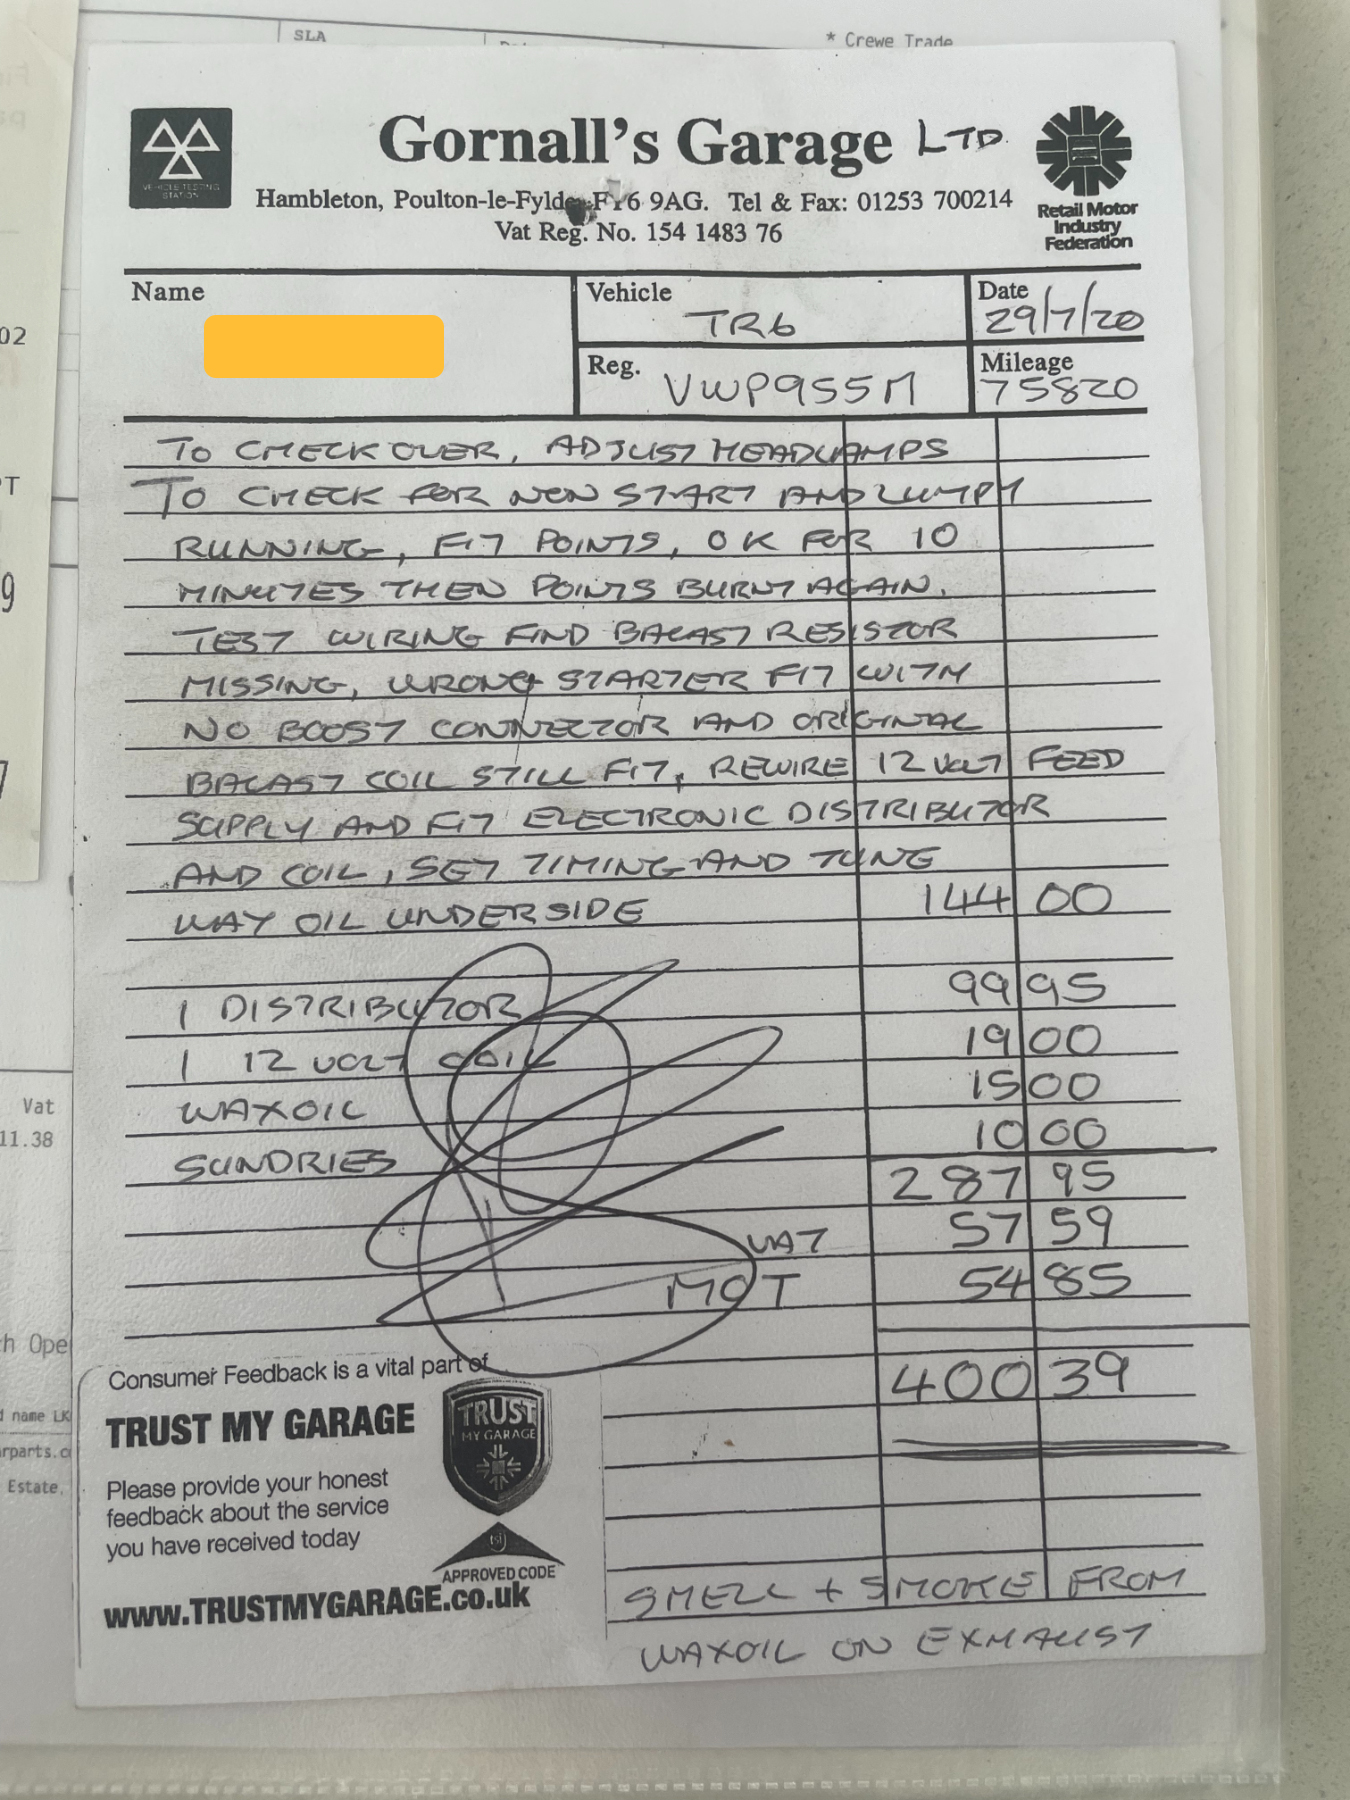 SLA
* Crewe Trade
02
PT
9
7
Vat
11.38
h Ope
d name LK
arparts.c
Estate,
VEHICLE TESTING
STATION
Gornall's Garage LTD.
Hambleton, Poulton-le-Fylde FY6 9AG. Tel & Fax: 01253 700214
Vat Reg. No. 154 1483 76
Retail Motor
Industry
Federation
Name
Vehicle
TR6
Date
29/7/20
Reg. VWP955M
Mileage
75820
TO CHECK OVER, ADJUST HEADLAMPS
TO CHECK FOR NON START AND LUMPY
RUNNING, FIT POINTS, OK FOR 10
MINUTES THEN POINTS BURNT AGAIN.
TEST WIRING FIND BALAST RESISTOR
MISSING, WRONG STARTER FIT WITH
NO BOOST CONNECTOR AND ORIGINAL
BALAST COIL STILL FIT, REWIRE 12 VOLT FEED
SUPPLY AND FIT ELECTRONIC DISTRIBUTOR
AND COIL, SET TIMING AND TUNE
WAX OIL UNDERSIDE 144 00
1 DISTRIBUTOR 99 95
1 12 VOLT COIL 19 00
WAXOIL 15 00
SUNDRIES 10 00
287 95
VAT 57 59
MOT 54 85
400 39
Consumer Feedback is a vital part of
TRUST MY GARAGE
Please provide your honest
feedback about the service
you have received today
www.TRUSTMYGARAGE.co.uk
TRUST
MY GARAGE
tsi
APPROVED CODE
SMELL + SMOKE FROM
WAXOIL ON EXHAUST